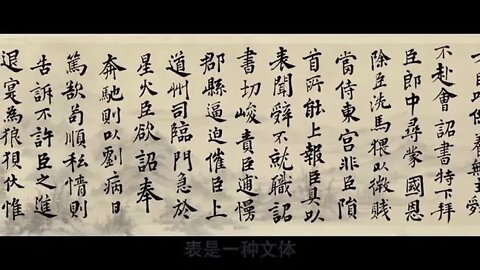 才臣以供養無主辭
不赴會詔書特下拜
臣郎中尋蒙國恩
除臣洗馬猥以微賤
當侍東宮非臣隕
首所能上報臣具以
表聞辭不就職詔
書切峻責臣逋慢
郡縣逼迫催臣上
道州司臨門急於
星火臣欲詔奉
奔馳則以劉病日
篤欲苟順私情則
告訴不許臣之進
退寔為狼狽伏惟
表是一种文体